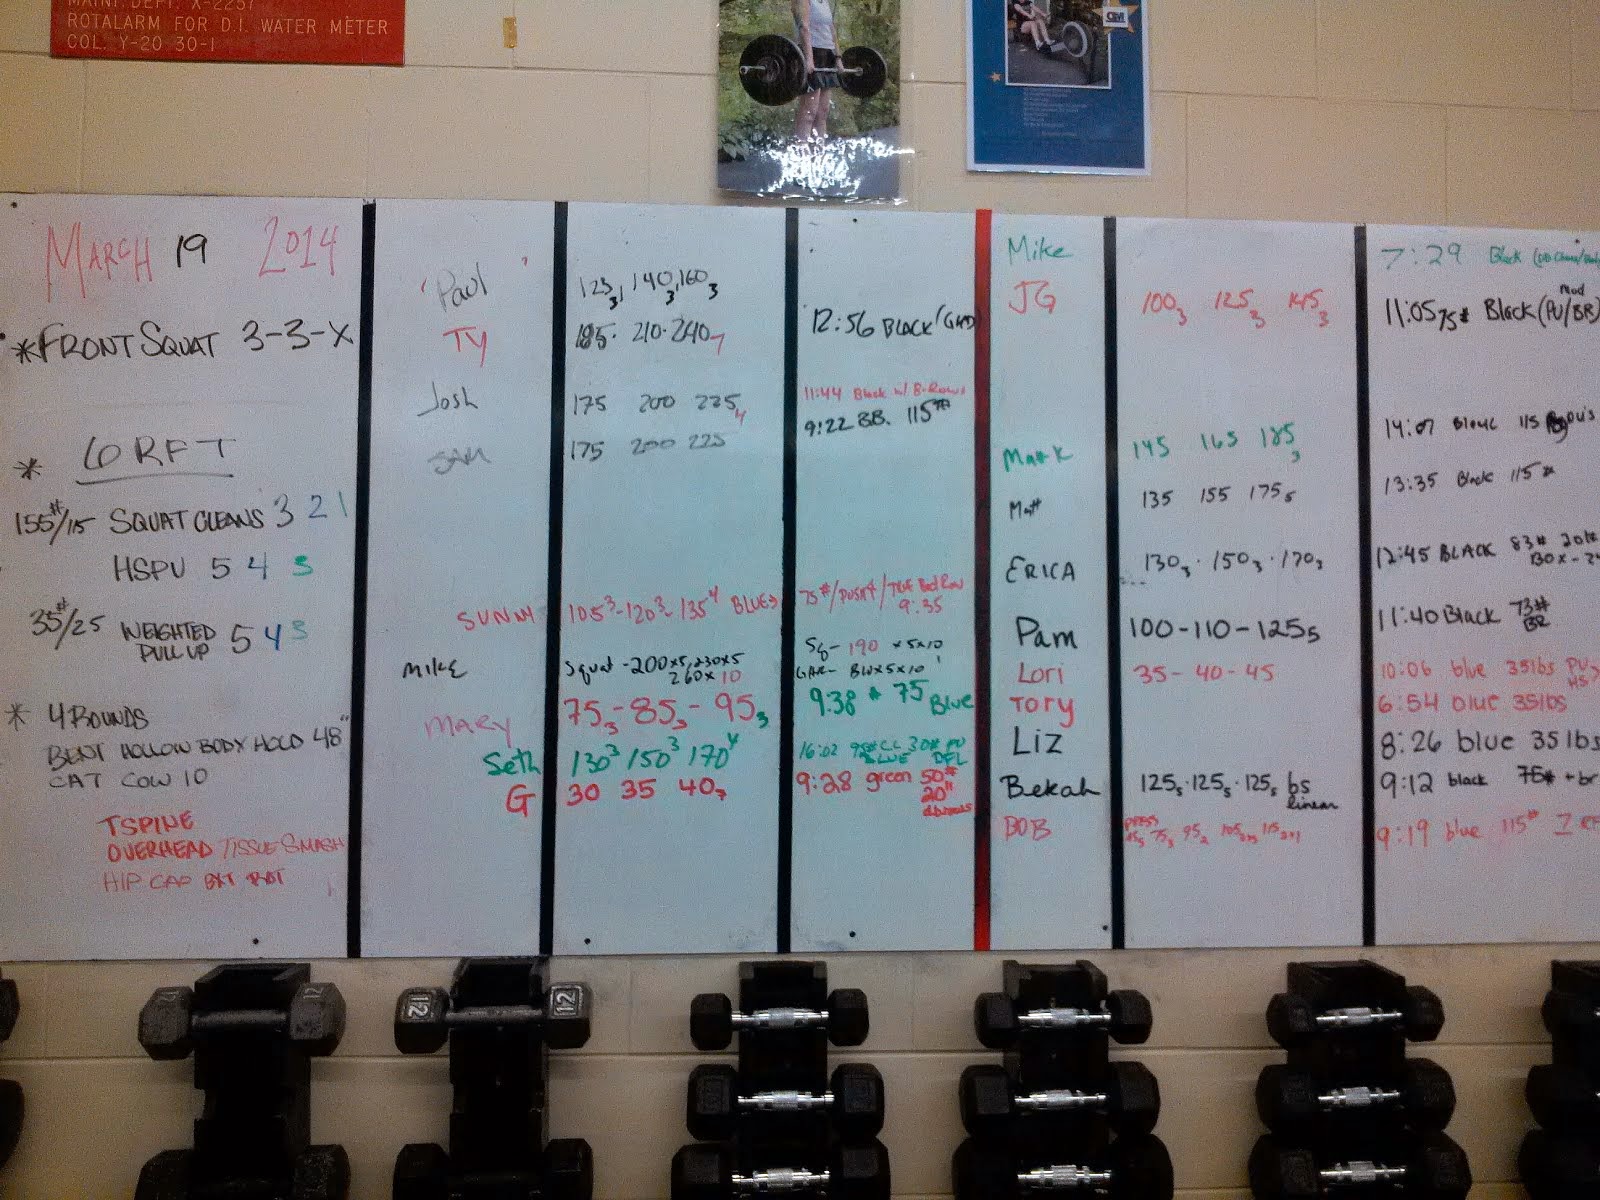 MAINT. DEPT. X-2257
ROTALARM FOR D.I. WATER METER
COL. Y-20 30-1
MARCH 19 2014
*FRONT SQUAT 3-3-X
* 6 RFT
155#/115 SQUAT CLEANS 3 2 1
HSPU 5 4 3
35#/25 WEIGHTED PULL UP 5 4 3
* 4 ROUNDS
BENT HOLLOW BODY HOLD 48"
CAT COW 10
TSPINE
OVERHEAD TISSUE SMASH
HIP CAP EXT ROT
Paul 125 3, 140 3, 160 3
TY 185· 210· 240 7 12:56 BLACK (GHD)
Josh 175 200 225 4 11:44 Black w/ B.Rows
SAM 175 200 225 9:22 BB. 115#
SUNNY 105³-120³-135⁴ BLUES 75#/PUSH/ Bod Row 9:35
MIKE Squat -200x5, 230x5 260x10 SQ- 190 x5x10
MARY 75 3-85 3-95 3 9:38 # 75 Blue
Seth 130³ 150³ 170⁴ 16:02 30# PU BLUE DFL
G 30 35 40 7 9:28 green 50# 20"
Mike 7:29 Black
JG 100 3 125 3 145 3 11:05 75# Black (PU/BR) Mod
Mark 145 165 185 3 14:07 Black 115
Matt 135 155 175 5 13:35 Black 115#
ERICA 130 3 · 150 3 · 170 3 12:45 BLACK 83# BOX-
Pam 100-110-125 5 11:40 Black 73# BR
Lori 35-40-45 10:06 blue 35lbs PU
Tory 6:54 blue 35lbs
Liz 8:26 blue 35lbs
Bekah 125 5 · 125 5 · 125 5 bs linear 9:12 black 75# + br
BOB PRESS 75 3 95 2 9:19 blue 115#
12
12
12
12